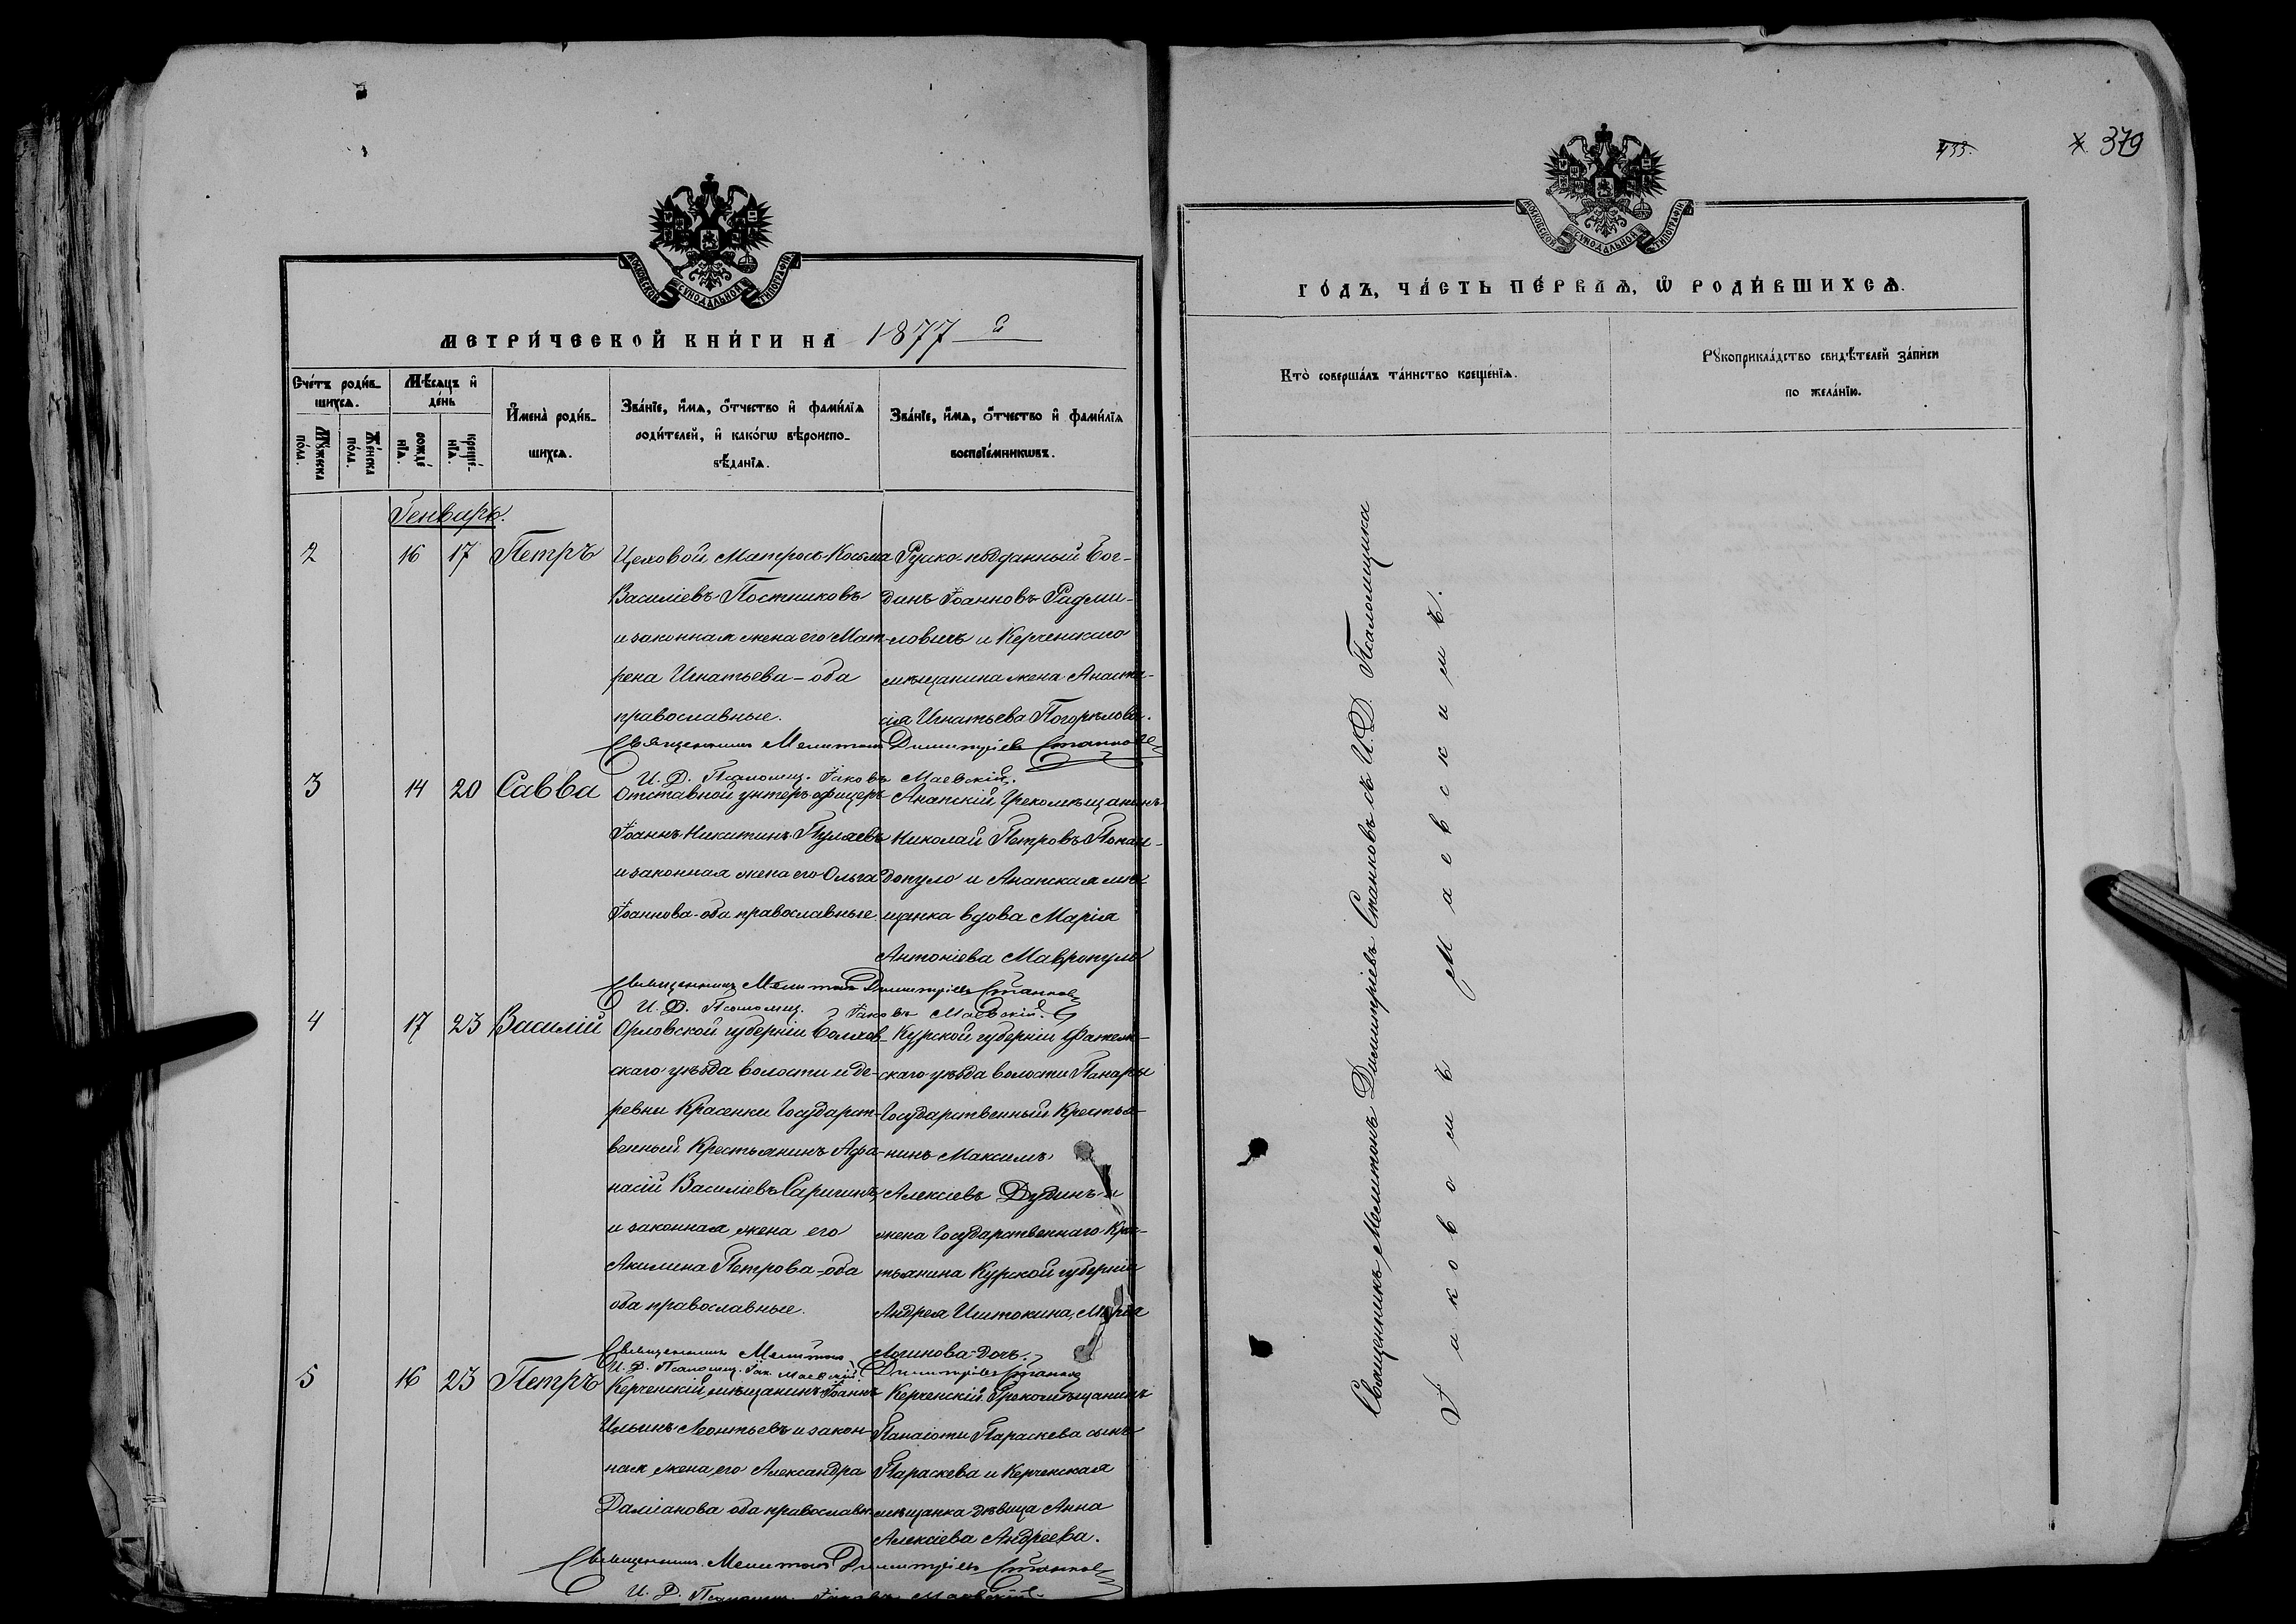 МОСКОВСКОЙ СѴНОДАЛЬНОЙ ТИПОГРАФІИ
МЕТРИ́ЧЕСКОЙ КНИ́ГИ НА 1877 г
Сче́тъ роди́в-
шихсѧ.
Мꙋ́жеска
по́ла.
Же́нска
по́ла.
Мѣ́сѧцъ и҆
де́нь
рожде́
нїѧ.
креще́-
нїѧ.
И҆мена̀ роди́в-
шихсѧ.
Зва́нїе, и҆́мѧ, ѻ҆́тчество и҆ фами́лїѧ
роди́телей, и҆ како́гѡ вѣроиспо-
вѣ́данїѧ.
Зва́нїе, и҆́мѧ, ѻ҆́тчество и҆ фами́лїѧ
воспрїе́мникѡвъ.
Генварь.
2 16 17 Петръ
Цеховой Матросъ Косьма
Василіевъ Постниковъ
и законная жена его Мат-
рена Игнатьева – оба
православные.
Руско-подданный Бог-
данъ Іоанновъ Радми-
ловичъ и Керченскаго
мѣщанина жена Анаста-
сія Игнатьева Погорѣлова.
Священникъ Мелитонъ Димитріевъ Станковъ
И. Д. Псаломщ. Іаковъ Маевскій.
3 14 20 Савва
Отставной унтеръ-офицеръ
Іоаннъ Никитинъ Пуляевъ
и законная жена его Ольга
Іоаннова – оба православные.
Анапскій Грекомѣщанинъ
Николай Петровъ Попан-
допуло и Анапская мѣ-
щанка вдова Марія
Антоніева Мавропуло
Священникъ Мелитонъ Димитріевъ Станковъ
И. Д. Псаломщ. Іаковъ Маевскій.
4 17 23 Василій
Орловской губерніи Болхов-
скаго уѣзда волости и де-
ревни Красенки Государст-
венный Крестьянинъ Афа-
насій Василіевъ Саричинъ
и законная жена его
Акилина Петрова – оба
оба православные.
Курской губерніи Фатеж-
скаго уѣзда волости Панары
Государственный Крестья-
нинъ Максимъ
Алексіевъ Дудинъ и
жена Государственнаго Крес-
тьянина Курской губерніи
Андрея Ишткина, Марія
Логинова дочь.
Священникъ Мелитонъ Димитріевъ Станковъ
И. Д. Псаломщ. Іак. Маевскій.
5 16 23 Петръ
Керченскій мѣщанинъ Іоаннъ
Ильинъ Леонтьевъ и закон-
ная жена его Александра
Даміанова оба православн.
Керченскій Грекомѣщанинъ
Панаіоти Параскева сынъ
Параскева и Керченская
мѣщанка дѣвица Анна
Алексіева Андреева.
Священникъ Мелитонъ Димитріевъ Станковъ
И. Д. Псаломщ. Іаковъ Маевскій.
435.
379
МОСКОВСКОЙ СѴНОДАЛЬНОЙ ТИПОГРАФІИ
ГО́ДЪ, ЧА́СТЬ ПЕ́РВАѦ, Ѡ҆ РОДИ́ВШИХСѦ.
Кто̀ соверша́лъ та́инство креще́нїѧ.
Рꙋкоприкла́дство свидѣ́телей за́писи
по жела́нїю.
Священникъ Мелитонъ Димитріевъ Станковъ съ И. Д Псаломщика
Іаковомъ Маевскимъ.